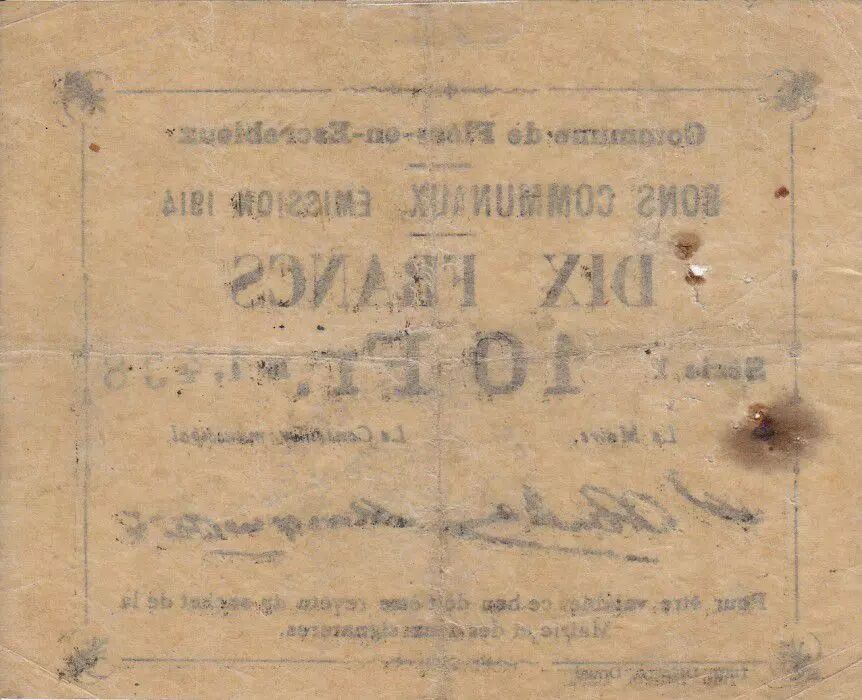 Commune de Flers-en-Escrebieux
BONS COMMUNAUX. EMISSION 1914
DIX FRANCS
Série 10 Fr.
Le Maire, Le Conseiller municipal
Pour être valable, ce bon doit être revêtu du cachet de la
Mairie et des deux signatures.
Imp. Douai